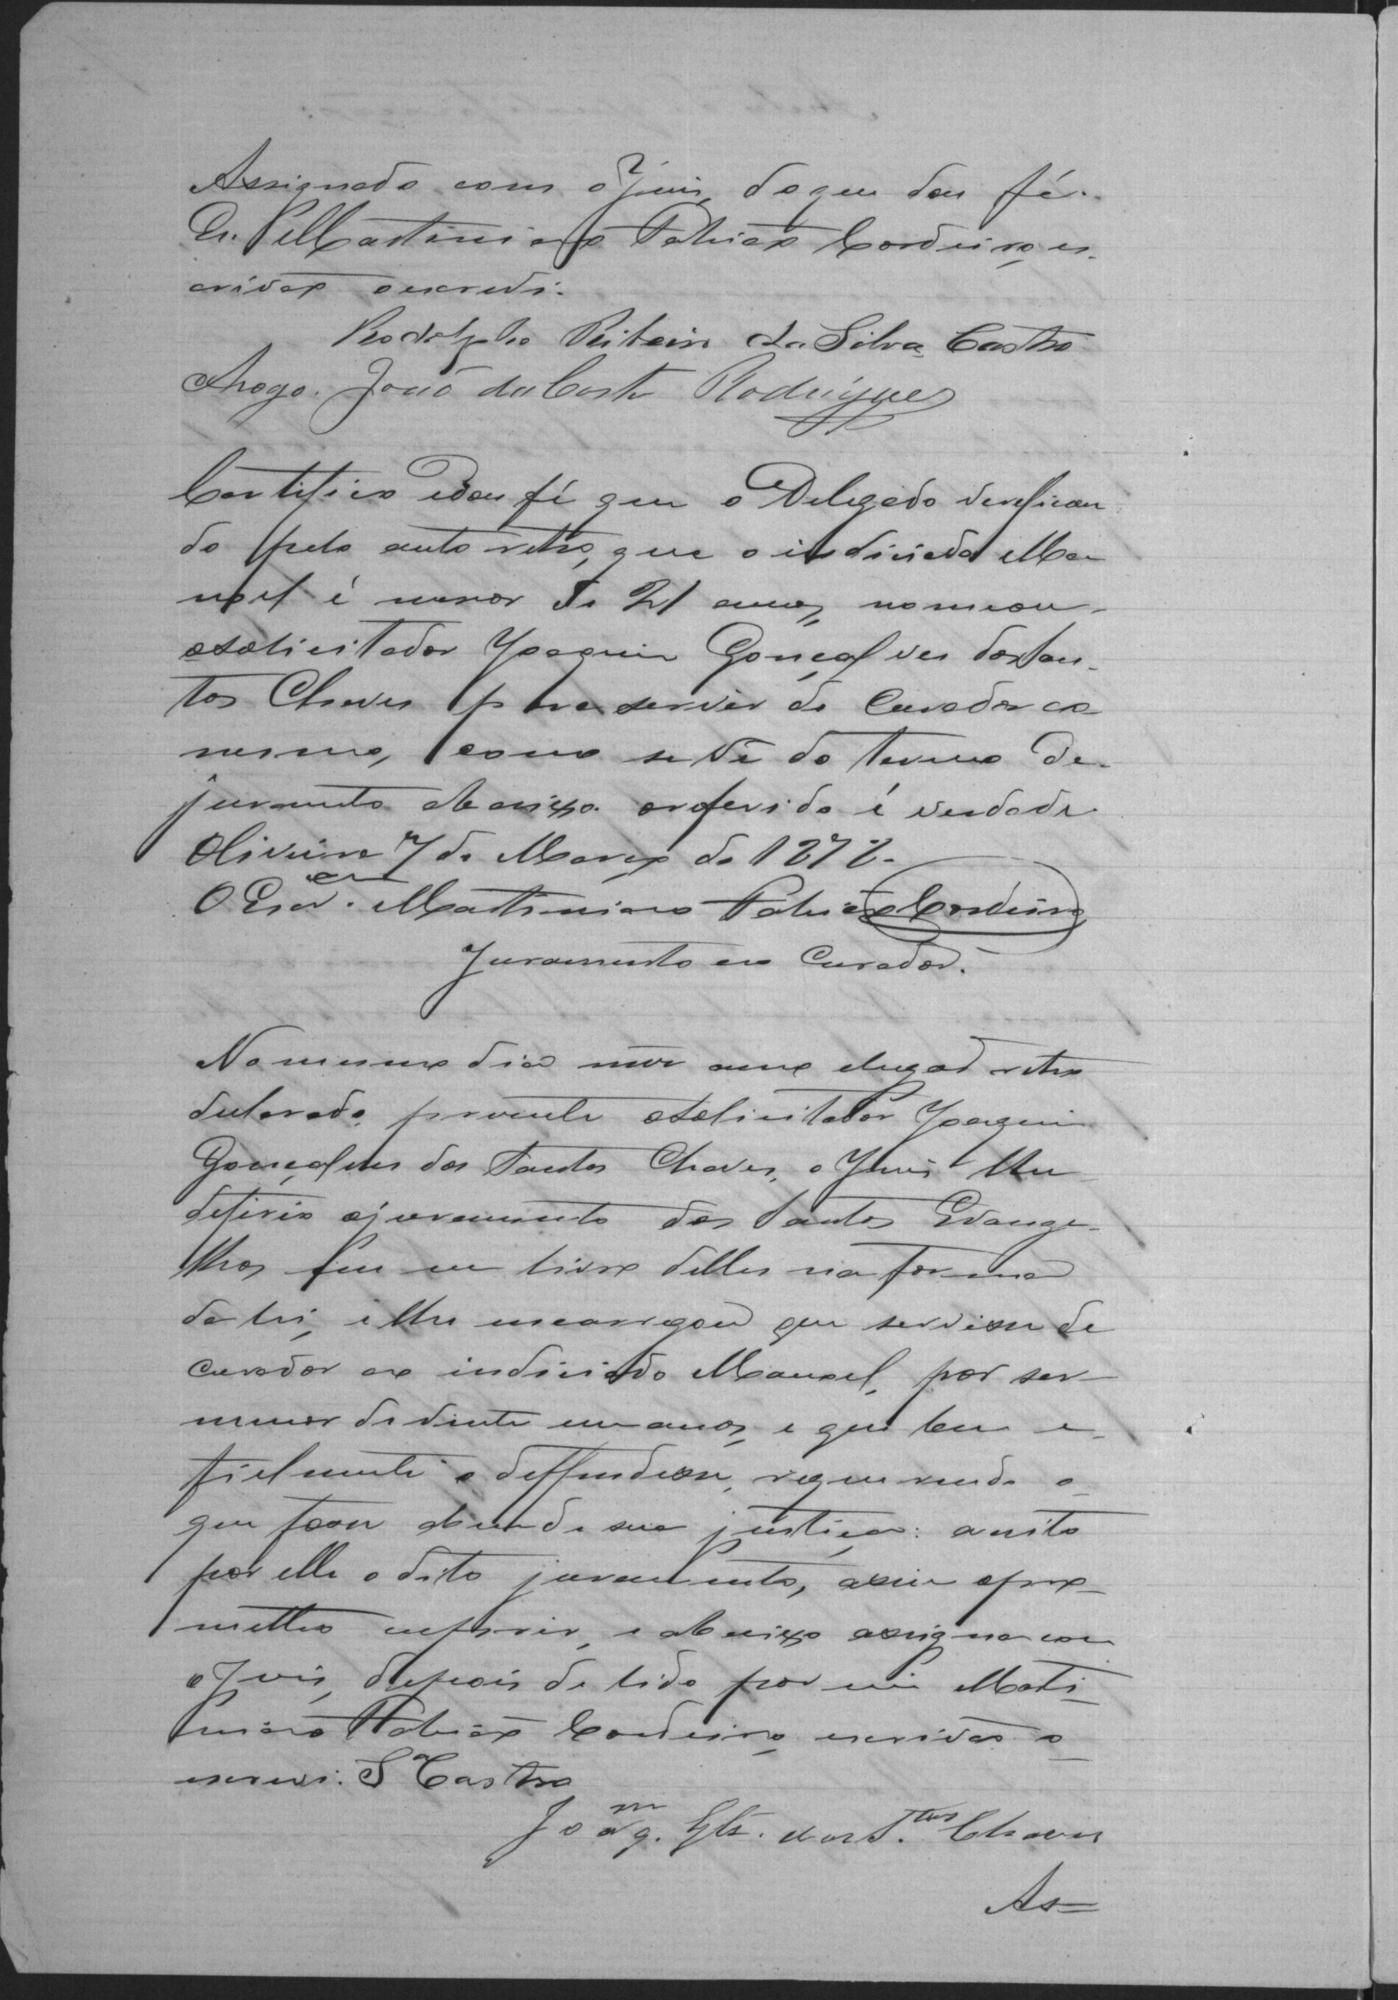 Assignado com o Juis, do que dou fé.
Eu Martiniano Patricio Cordeiro, es-
crivão o escrevi.
Rodolpho Ribeiro da Silva Castro
Arogo. João da Costa Rodrigues
Certifico e dou fé que o Delegado verifican
do pelo auto retro, que o indiciado Ma
noel é menor de 21 annos, nomeou
o solicitador Joaquim Gonçalves dos San-
tos Chaves para servir de Curador ao
mesmo, como se vê do termo de
juramento abaixo. O referido é verdade
Oliveira 7 de Março de 1872.
O Escr.am Martiniano Patricio Cordeiro
Juramento ao Curador.
No mesmo dia mez anno e lugar retro
declarado, presente o solicitador Joaquim
Gonçalves dos Santos Chaves, o Juis lhe
deferio o juramento dos Santos Evange-
lhos em um livro delles na forma
da lei, e lhe encarregou que servisse de
curador ao indiciado Manoel, por ser
menor de vinte um annos, e que bem e
fielmente o deffendesse, requerendo o
que fosse a bem de sua justiça: aceito
por elle o dito juramento, assim o pro-
metteo cumprir, e abaixo assigna com
o Juis, depois de lido por mim Marti-
niano Patricio Cordeiro, escrivão o
escrevi. S Castro
Joaq.m Glz. dos S.tos Chaves
As=